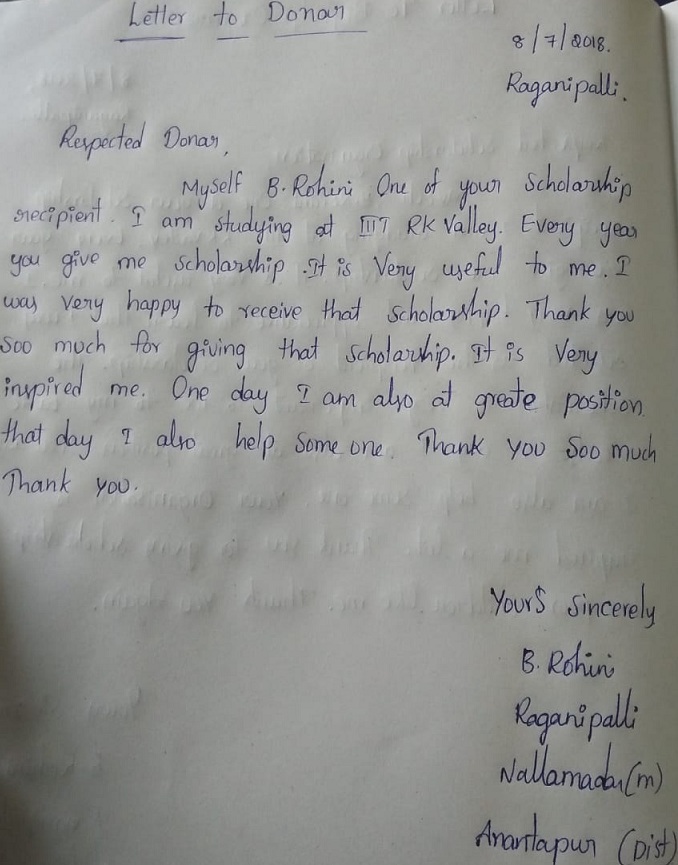 Letter to Donar
8/7/2018.
Raganipalli.
Respected Donar,
Myself B. Rohini One of your Scholarship
recipient. I am studying at IIIT RK Valley. Every year
you give me scholarship. It is Very useful to me. I
was very happy to receive that scholarship. Thank you
Soo much for giving that scholarship. It is Very
inspired me. One day I am also at greate position.
that day I also help some one. Thank you Soo much
Thank you.
Yours Sincerely
B. Rohini
Raganipalli
Nallamada(m)
Anantapur (Dist)